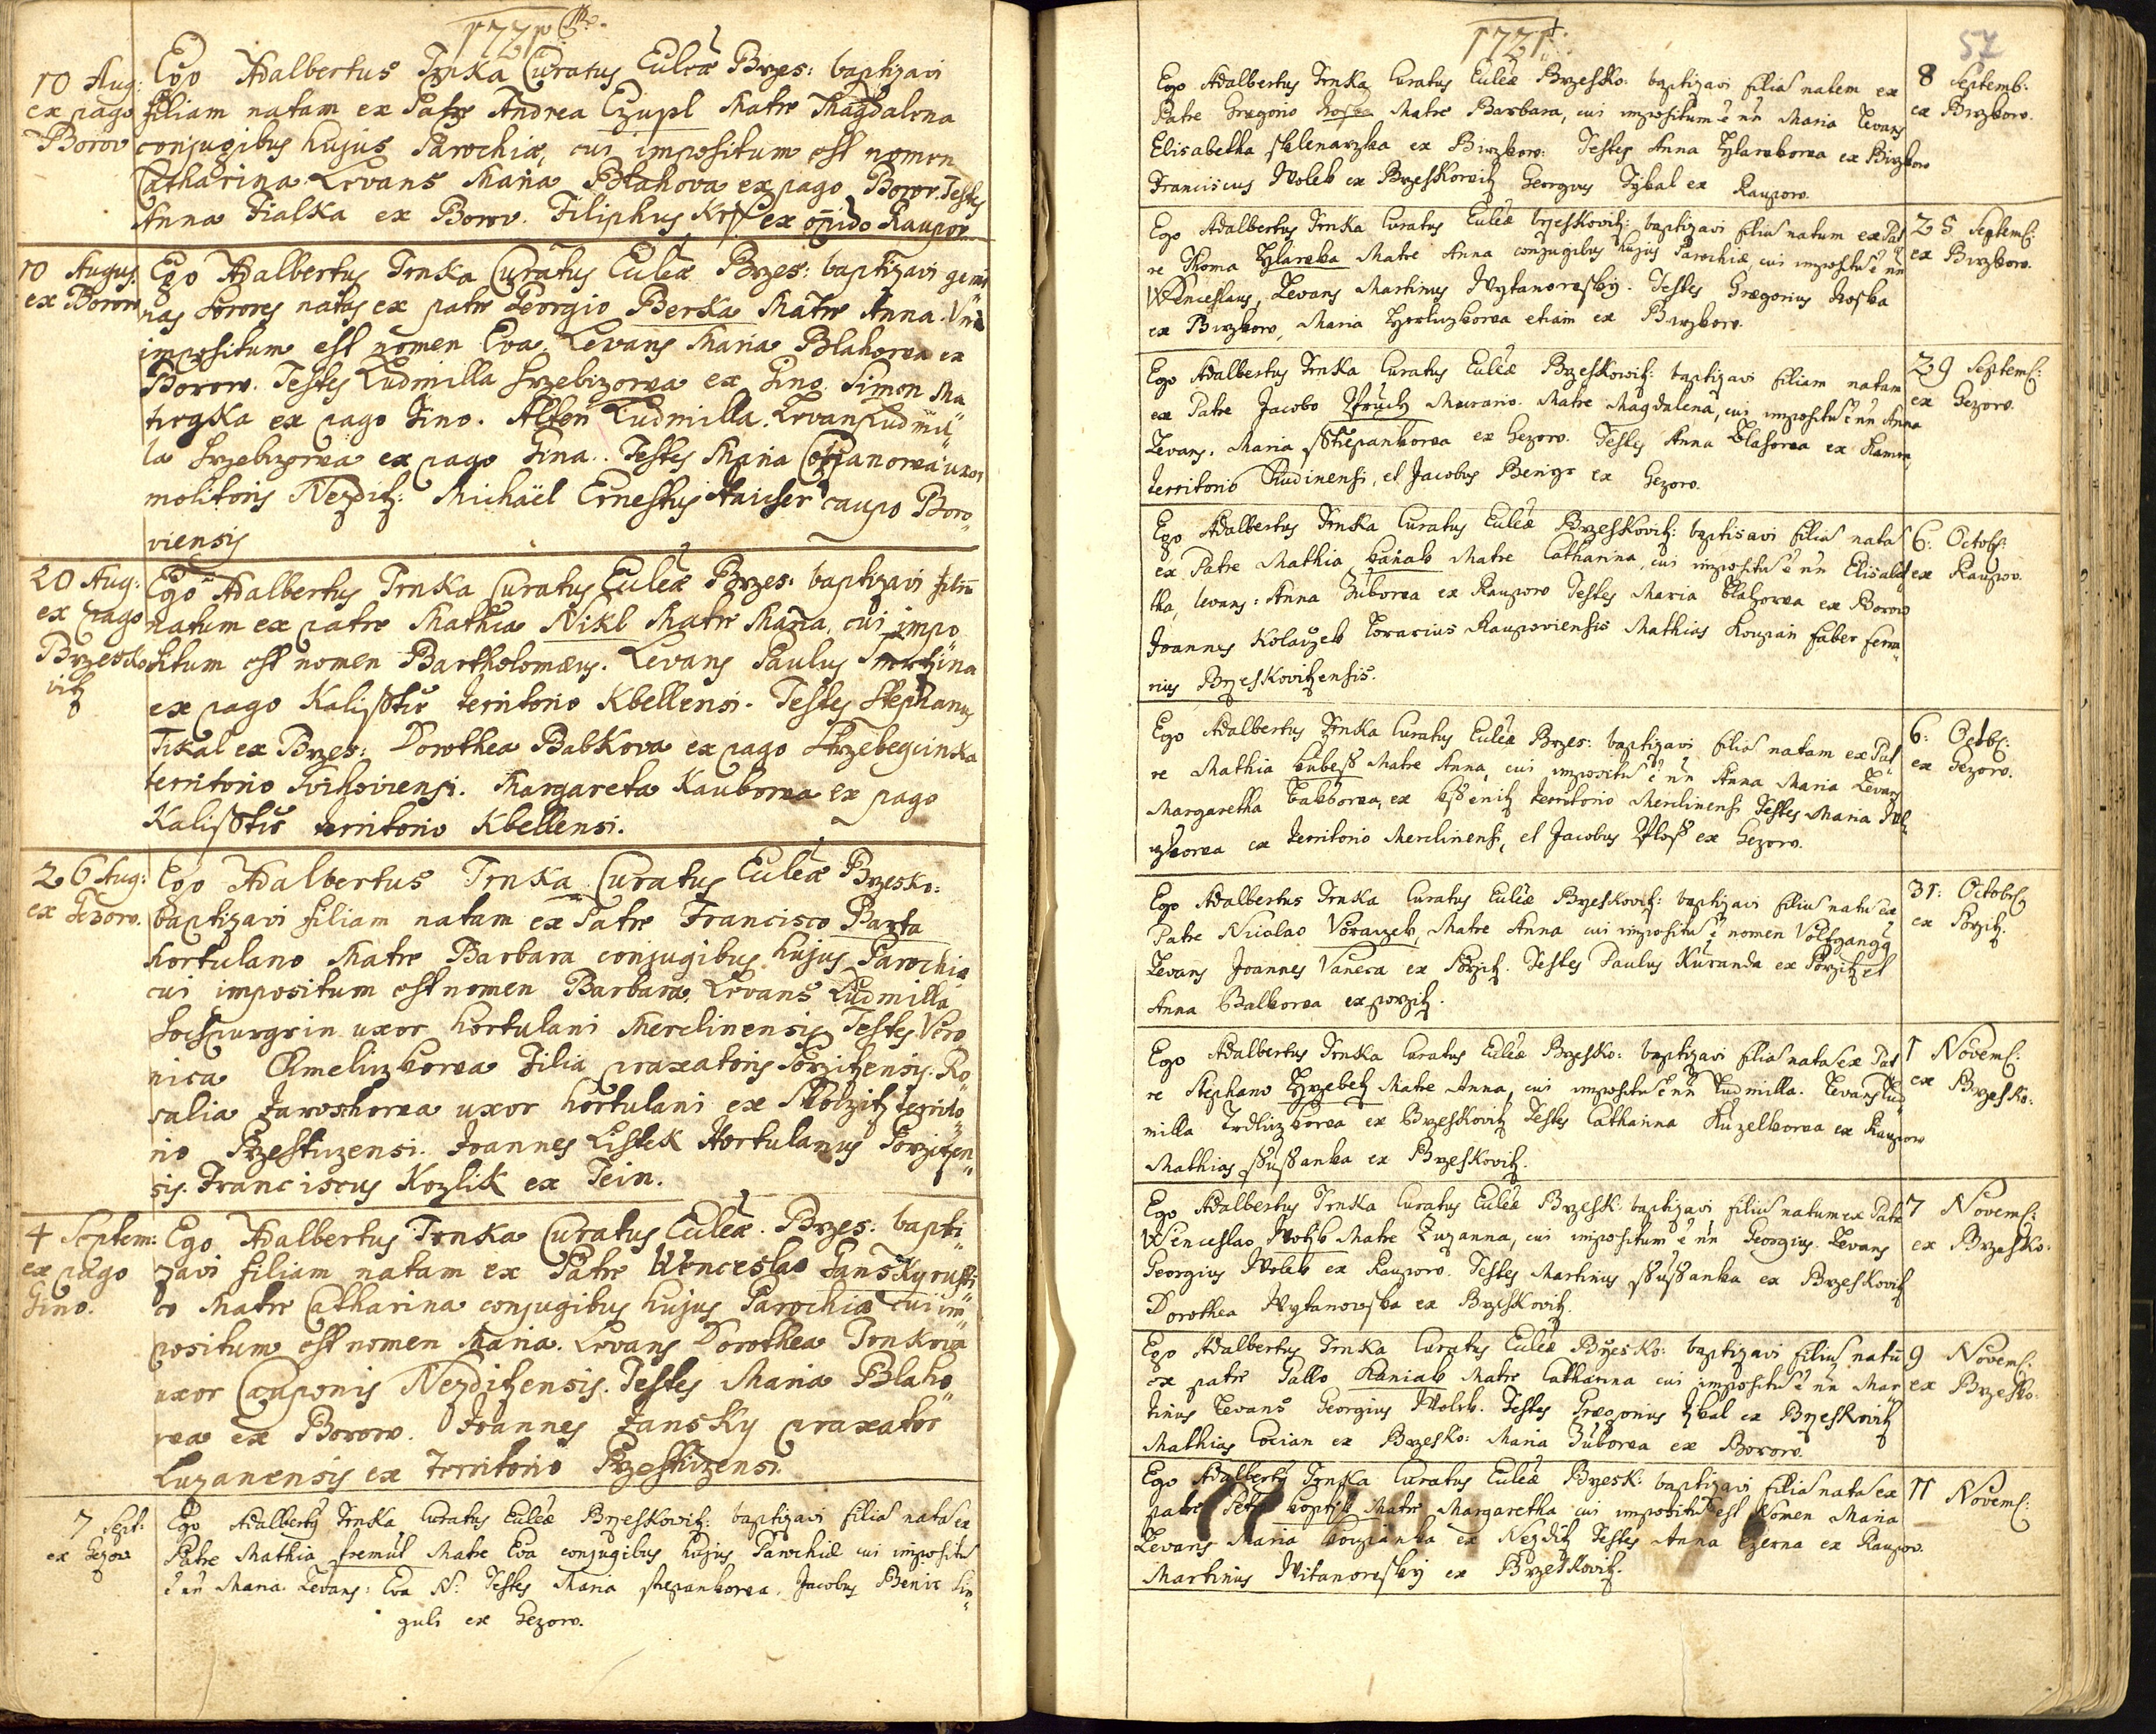 1721
10 Aug:
ex pago
Borov
Ego Adalbertus Trnka Curatus Eccliae Brzes: baptizavi
filiam natam ex Patre Andrea Czupl Matre Magdalena
conjugibus hujus Parochiae, cui impositum est nomen
Catharina. Levans Maria Blahova ex pago Borov. Testes
Anna Fialka ex Borov. Filiphus ex oppido Raupov
10 Augus:
ex Borow
Ego Adalbertus Trnka Curatus Eccliae Brzes: baptizavi gemi
nas sorores natas ex patre Georgio Berka Matre Anna. Uni
impositum est nomen Eva. Levans Maria Blahowa ex
Borow. Testes Ludmilla Hrzebizowa ex Gino. Simon Ma
ex pago Gino. Alteri Ludmilla. Levans Ludmil
la Hrzebizowa ex pago Gina. Testes Maria uxor
molitoris Nezditz: Michäel Ernestus caupo Boro
viensis
20 Aug:
ex pago
Brzesko
vitz
Ego Adalbertus Trnka Curatus Eccliae Brzes: baptizavi filiu
natum ex patre Mathia Nikl Matre Maria, cui impo
situm est nomen Bartholomaeus. Levans Paulus
ex pago Kalisstie territorio Kbellensi. Testes Stephanus
Tikal ex Brzes: Dorothea Babkova ex pago
territorio Svihoviensi. Margareta Kaubowa ex pago
Kalisstie territorio Kbellensi.
26 Aug:
ex Gezow.
Ego Adalbertus Trnka Curatus Eccliae Brzesko:
baptizavi filiam natam ex Patre Francisco Barta
hortulano Matre Barbara conjugibus hujus Parochiae
cui impositum est nomen Barbara. Levans Ludmilla
uxor hortulani Merclinensis Testes Vero
nica Chmeliczkowa Filia praxatoris Porzitzensis. Ro
salia Jaroschowa uxor hortulani ex territo
rio Przestizensi. Joannes Listek Hortulanus Porzitzen
sis. Franciscus Kozlik ex Tein.
4 Septem:
ex pago
Gino.
Ego Adalbertus Trnka Curatus Eccliae Brzes: bapti
zavi filiam natam ex Patre Wenceslao Jansky rusti
co Matre Catharina conjugibus hujus Parochiae cui im
positum est nomen Maria. Levans Dorothea Trnkova
uxor Cauponis Nezditzensis. Testes Maria Blaho
wa ex Borow. Joannes Jansky praxator
Luzanensis ex Territorio Przestizensi.
7 Sept:
ex Gezow
Ego Adalbertg Trnka Curatus Eccliae Brzeskovitz: baptizavi filia nata ex
Patre Mathia Matre Eva conjugibus hujus Parochiae cui impositu
e nn Maria. Levans: Eva N: Testes Maria stiepankowa. Jacobus Benic sin
guli ex Gezow.
1721
57
Ego Adalbertus Trnka Curatus Eccliae Brzesko: baptizavi filia natam ex
8 Septemb:
Patre Gregorio Matre Barbara, cui impositum e nn Maria Levans
ex Birzkow.
Elisabetha sklenarzka ex Birzkow: Testes Anna ex Birzkow
Franciscus Wolek ex Brzeskowitz Georgius Tykal ex Raupow.
Ego Adalbertus Trnka Curatus Eccliae brzeskowitz: baptizavi filiu natum ex Pat
25 Septemb:
re Thoma Matre Anna conjugibus hujus Parochiae, cui impositu e nn
ex Birzkow.
Wenceslaus, Levans Martinus Wytanowsky. Testes Gregorius
ex Birzkow, Maria etiam ex Birzkow.
Ego Adalbertus Trnka Curatus Eccliae Brzeskowitz: baptizavi filiam natam
29 Septemb:
ex Patre Jacobo Murario. Matre Magdalena, cui impositu e nn Anna
ex Gezow.
Levans. Maria sstiepankowa ex Gezow. Testes Anna ex
territorio Rudinensi, et Jacobus ex Gezow.
Ego Adalbertus Trnka Curatus Eccliae Brzeskovitz: baptisavi filia nata
6: Octob:
ex Patre Mathia Matre Catharina, cui impositu e nn Elisabe
ex Raupow.
tha, levans: Anna Zubowa ex Raupow Testes Maria Blahowa ex Borow
Joannes Kolarzek Raupoviensis Mathias faber ferra
rius Brzeskovitzensis.
Ego Adalbertus Trnka Curatus Eccliae Brzes: baptizavi filia natam ex Pat
6: Octob:
re Mathia kubess Matre Anna, cui impositu e nn Anna Maria Levans
ex Gezow.
Margaretha ex territorio Merclinensi Testes Maria
ex territorio Merclinensi, et Jacobus ex Gezow.
Ego Adalbertus Trnka Curatus Eccliae Brzeskovitz: baptizavi filiu natu ex
31: Octob:
Patre Nicolao Woraczek, Matre Anna cui impositu e nomen Volfgangg
ex Porzitz.
Levans Joannes Vanera ex Porzitz. Testes Paulus Kuranda ex Porzitz et
Anna ex porzitz.
Ego Adalbertus Trnka Curatus Eccliae Brzesko: baptizavi filia nata ex Pat
1 Novemb:
re Stephano Matre Anna, cui impositu e nn Ludmilla. Levans Lud
ex Brzesko:
milla ex Brzeskovitz Testes Catharina Kuzelkowa ex Raupow
Mathias ssussanka ex Brzeskovitz.
Ego Adalbertus Trnka Curatus Eccliae Brzesk: baptizavi filiu natum ex Patre
7 Novemb:
Wenceslao Matre Zuzanna, cui impositum e nn Georgius. Levans
ex Brzesko:
Georgius Wolek ex Raupow. Testes Martinus ssussanka ex Brzeskovitz
Dorothea Wytanowska ex Brzeskovitz.
Ego Adalbertus Trnka Curatus Eccliae Brzesko: baptizavi filiu natu
9 Novemb:
ex patre Gallo Kaniak Matre Catharina cui impositu e nn Mar
ex Brzesko:
tinus Levans Georgius Wolek. Testes Gregorius tykal ex Brzeskovitz
Mathias Cocian ex Brzesko: Maria Zubowa ex Borow.
Ego Adalbertg Trnka Curatus Eccliae Brzesk: baptizavi filia nata ex
11 Novemb:
patre Petro Matre Margaretha cui impositu est Nomen Maria
Levans Maria ex Nezditz Testes Anna czerna ex Raupow.
Martinus Witanowsky ex Brzeskovitz.